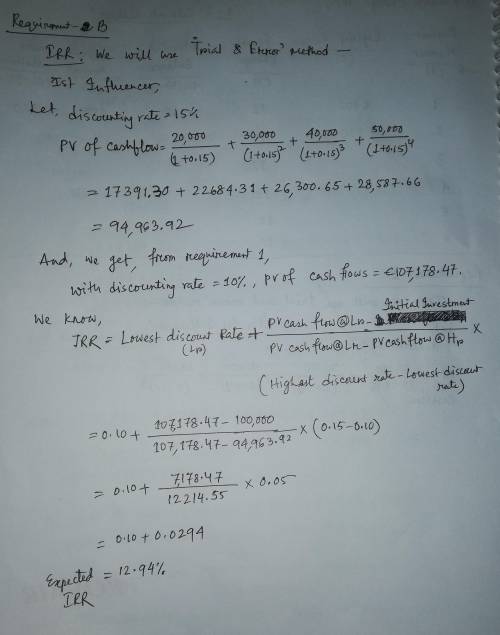 Requirement - B
IRR: We will use 'Trial & Error' Method —
Ist Influencer,
Let, discounting rate = 15%
PV of cashflow = 20,000/(1+0.15) + 30,000/(1+0.15)² + 40,000/(1+0.15)³ + 50,000/(1+0.15)⁴
= 17391.30 + 22684.31 + 26,300.65 + 28,587.66
= 94,963.92
And, we get, from requirement 1,
with discounting rate = 10%, PV of cash flows = €107,178.47.
We know,
IRR = Lowest discount Rate (LR) + (PV cash flow@LR - Initial Investment)/(PV cash flow@LR - PV cash flow@HR) ×
(Highest discount rate - Lowest discount rate)
= 0.10 + (107,178.47 - 100,000)/(107,178.47 - 94,963.92) × (0.15 - 0.10)
= 0.10 + 7,178.47/12214.55 × 0.05
= 0.10 + 0.0294
Expected IRR = 12.94%